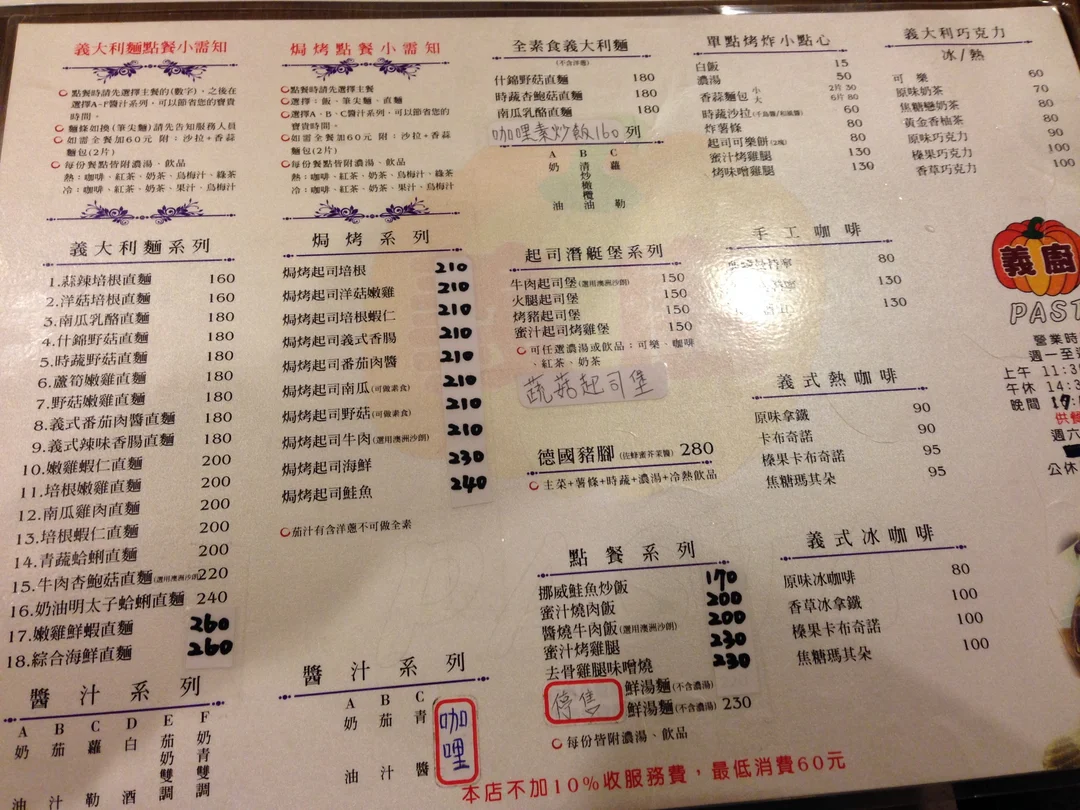 義大利麵點餐小需知
點餐時請先選擇主餐的(數字)、之後在
選擇A-F醬汁系列,可以節省您的寶貴
時間。
麵條如換(筆尖麵)請先告知服務人員
如需全餐加60元 附:沙拉+香蒜
麵包(2片)
每份餐點皆附濃湯、飲品
熱:咖啡、紅茶、奶茶、烏梅汁、綠茶
冷:咖啡、紅茶、奶茶、果汁、烏梅汁
義大利麵系列
1.蒜辣培根直麵 160
2.洋菇培根直麵 160
3.南瓜乳酪直麵 180
4.什錦野菇直麵 180
5.時蔬野菇直麵 180
6.蘆筍嫩雞直麵 180
7.野菇嫩雞直麵 180
8.義式番茄肉醬直麵 180
9.義式辣味香腸直麵 180
10.嫩雞蝦仁直麵 200
11.培根嫩雞直麵 200
12.南瓜雞肉直麵 200
13.培根蝦仁直麵 200
14.青蔬蛤蜊直麵 200
15.牛肉杏鮑菇直麵(選用澳洲沙朗) 220
16.奶油明太子蛤蜊直麵 240
17.嫩雞鮮蝦直麵 260
18.綜合海鮮直麵 260
醬汁系列
A B C D E F
奶油 茄汁 蘿勒 白酒 茄奶雙調 奶青雙調
焗烤點餐小需知
點餐時請先選擇主餐
選擇:飯、筆尖麵、直麵
選擇A、B、C醬汁系列,可以節省您的
寶貴時間。
如需全餐加60元 附:沙拉+香蒜
麵包(2片)
每份餐點皆附濃湯、飲品
熱:咖啡、紅茶、奶茶、烏梅汁、綠茶
冷:咖啡、紅茶、奶茶、果汁、烏梅汁
焗烤系列
焗烤起司培根 210
焗烤起司洋菇嫩雞 210
焗烤起司培根蝦仁 210
焗烤起司義式香腸 210
焗烤起司番茄肉醬 210
焗烤起司南瓜(可做素食) 210
焗烤起司野菇(可做素食) 210
焗烤起司牛肉(選用澳洲沙朗) 210
焗烤起司海鮮 230
焗烤起司鮭魚 240
茄汁有含洋蔥不可做全素
醬汁系列
A B C
奶油 茄汁 青醬 咖哩
全素食義大利麵
(不含洋蔥)
什錦野菇直麵 180
時蔬杏鮑菇直麵 180
南瓜乳酪直麵 180
咖哩素炒飯160 列
A B C
奶油 清炒橄欖油 蘿勒
起司潛艇堡系列
牛肉起司堡(選用澳洲沙朗) 150
火腿起司堡 150
烤豬起司堡 150
蜜汁起司烤雞堡 150
可任選濃湯或飲品:可樂、咖啡
、紅茶、奶茶
蔬菇起司堡
德國豬腳(佐蜂蜜芥茉醬) 280
主菜+薯條+時蔬+濃湯+冷熱飲品
點餐系列
挪威鮭魚炒飯 170
蜜汁燒肉飯 200
醬燒牛肉飯(選用澳洲沙朗) 200
蜜汁烤雞腿 230
去骨雞腿味噌燒 230
停售
鮮湯麵(不含濃湯)
鮮湯麵(不含濃湯) 230
每份皆附濃湯、飲品
單點烤炸小點心
白飯 15
濃湯 50
香蒜麵包 小 2片 30
大 6片 80
時蔬沙拉 60
炸薯條 80
起司可樂餅(2塊) 80
蜜汁烤雞腿 130
烤味噌雞腿 130
手工咖啡
80
130
130
義式熱咖啡
原味拿鐵 90
卡布奇諾 90
榛果卡布奇諾 95
焦糖瑪其朵 95
義式冰咖啡
原味冰咖啡 80
香草冰拿鐵 100
榛果卡布奇諾 100
焦糖瑪其朵 100
義大利巧克力
冰/熱
可樂 60
原味奶茶 70
焦糖戀奶茶 80
黃金香柚茶 80
原味巧克力 90
榛果巧克力 100
香草巧克力 100
義廚
PAST
營業時
週一至
上午 11:3
午休 14:3
晚間
供餐
週六
公休
本店不加10%收服務費,最低消費60元